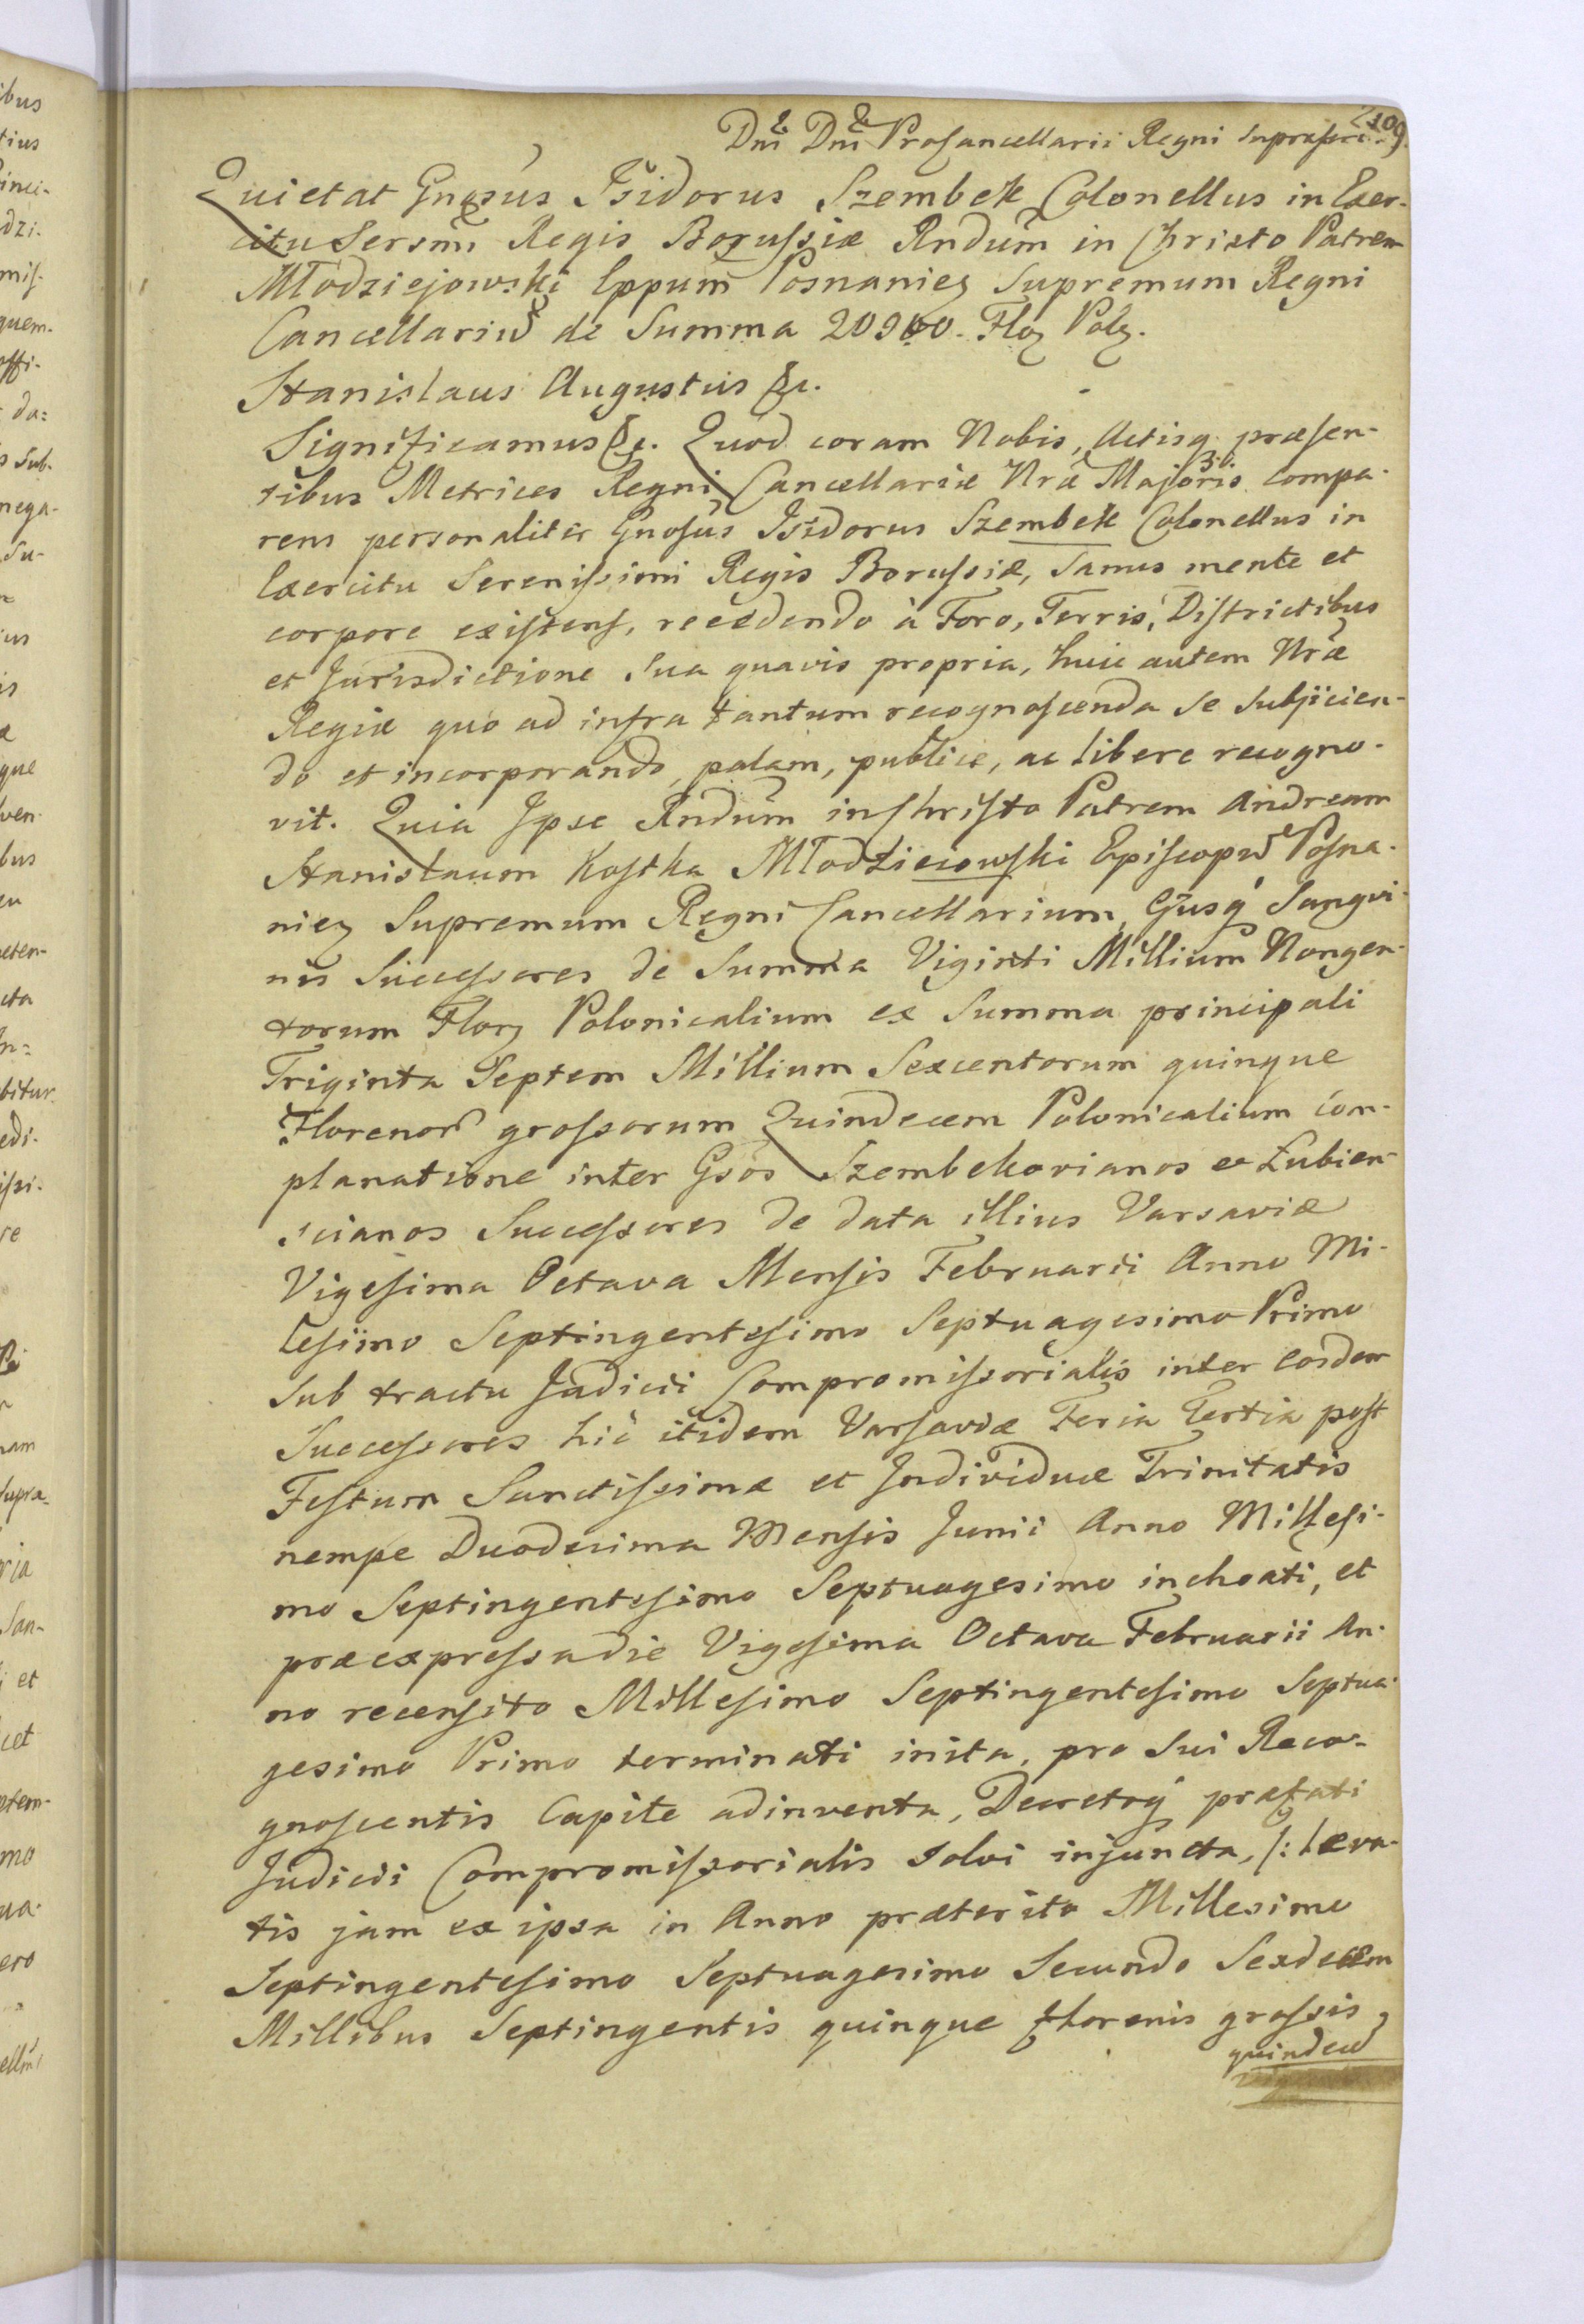 209
Dni Dni Procancellarii Regni suprascri
Quietat Gnosus Isidorus Szembek Colonellus in Exer-
citu Sersmi Regis Borussiæ Rndum in Christo Patrem
Młodziejowski Eppum Posnanien Supremum Regni
Cancellariu de Summa 20900. Flor Pol.
Stanislaus Augustus &c.
Significamus &c. Quod coram Nobis, Actisq præsen-
tibus Metrices Regni Cancellariæ Nræ Majoris compa-
rens personaliter Gnosus Isidorus Szembek Colonellus in
Exercitu Serenissimi Regis Borussiæ, Sanus mente et
corpore existens, recedendo à Foro, Terris, Districtibus
et Jurisdictione sua quavis propria, huic autem Nræ
Regiæ quo ad infra tantum recognoscenda se subjicien-
do et incorporando, palam, publice, ac libere recogno-
vit. Quia Ipse Rndum in Christo Patrem Andream
Stanislaum Kostka Młodzieiowski Episcopu Posna-
nien Supremum Regni Cancellarium, Ejusq Sangvi-
nis Successores de Summa Viginti Millium Nongen-
torum Flor Polonicalium ex Summa principali
Triginta Septem Millium Sexcentorum quinque
Florenor grossorum Quindecem Polonicalium com-
planatione inter Gsos Szembekovianos et Łubien-
scianos Successores de data illius Varsaviæ
Vigesima Octava Mensis Februarii Anno Mi-
lesimo Septingentesimo Septuagesimo Primo
sub tractu Judicii Compromissorialis inter eosdem
Successores hic itidem Varsaviæ Feria Tertia post
Festum Sanctissimæ et Individuæ Trinitatis
nempe Duodecima Mensis Junii Anno Millesi-
mo Septingentesimo Septuagesimo inchoati, et
præexpressa die Vigesima Octava Februarii An-
no recensito Millesimo Septingentesimo Septua-
gesimo Primo terminati inita, pro sui Reco-
gnoscentis Capite adinventa, Decretoq præfati
Judicii Compromissorialis solvi injuncta, /: Leva-
tis jam ex ipsa in Anno præterito Millesimo
Septingentesimo Septuagesimo Secundo Sexdecem
Millibus Septingentis quinque florenis grossis
quindece